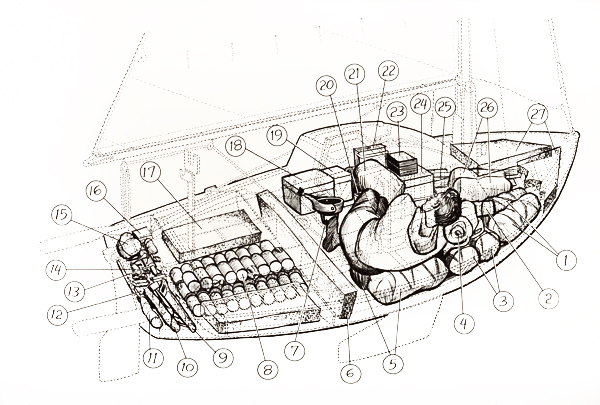 21 22
20 23 24 25 26 27
19
18
17
16
15
14
13
12
11 10 9 8 7 6 5 4 3 2 1